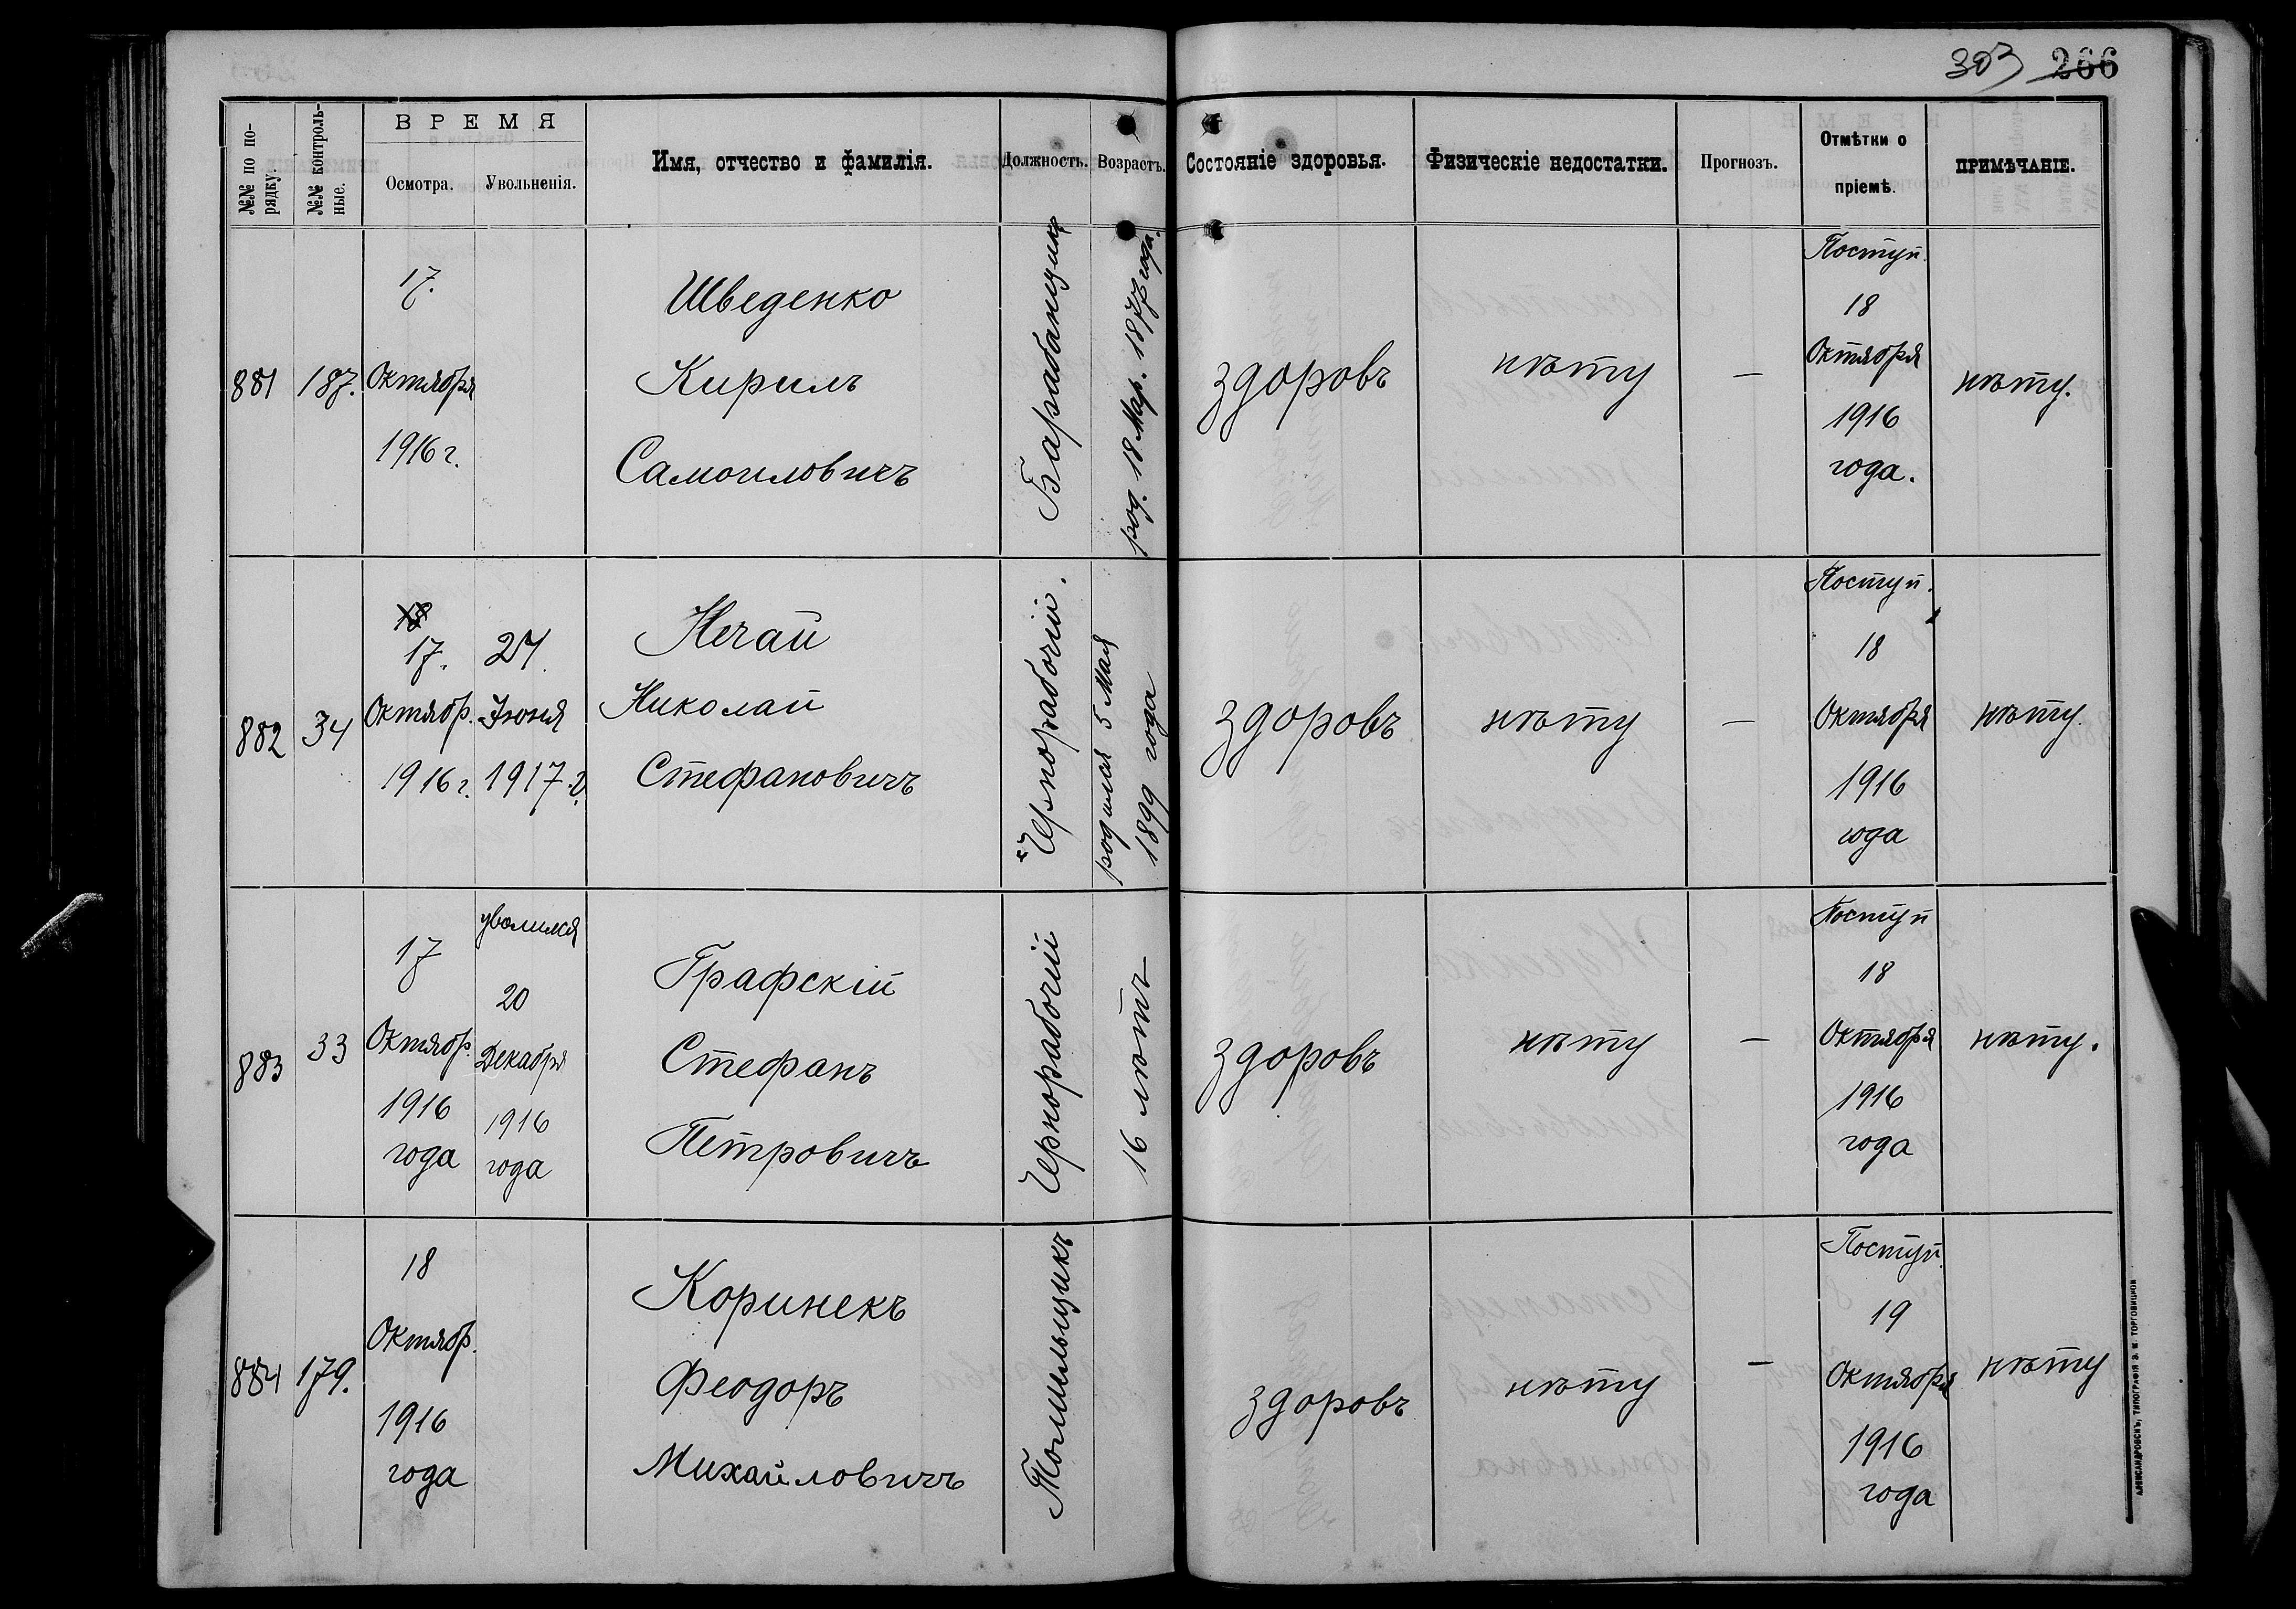 303 266
№№ по по-
рядку.
№№ контроль-
ные.
ВРЕМЯ
Осмотра.
Увольненія.
Имя, отчество и фамилія.
Должность.
Возрастъ.
Состояніе здоровья.
Физическіе недостатки.
Прогнозъ.
Отмѣтки о
пріемѣ.
ПРИМѢЧАНІЕ.
881
187.
17.
Октября
1916 г.
Шведенко
Кирилъ
Самоиловичъ
Барабанщикъ
род. 18 Мар. 1877 года.
здоровъ
нѣту
—
Поступ.
18
Октября
1916
года.
нѣту.
882
34
17.
Октябр.
1916 г.
27
Іюня
1917 г.
Нечай
Николай
Стефановичъ
Чернорабочій.
родился 5 Мая
1899 года
здоровъ
нѣту
—
Поступ.
18
Октября
1916
года
нѣту.
883
33
17
Октябр.
1916
года
уволился
20
Декабря
1916
года
Графскій
Стефанъ
Петровичъ
Чернорабочій
16 лѣтъ
здоровъ
нѣту
—
Поступ
18
Октября
1916
года
нѣту.
884
179.
18
Октябр.
1916
года
Коринекъ
Феодоръ
Михайловичъ
здоровъ
нѣту
—
Поступ.
19
Октября
1916
года
нѣту
АЛЕКСАНДРОВСКЪ, ТИПОГРАФІЯ З. М. ТОРГОВИЦКОЙ